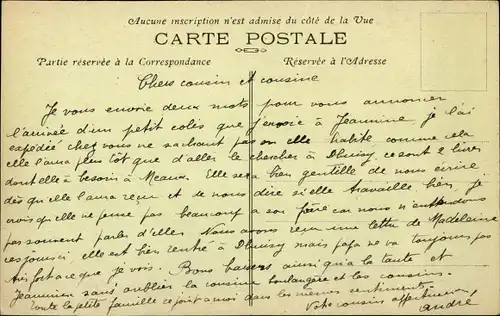 Aucune inscription n'est admise du côté de la Vue
CARTE POSTALE
Partie réservée à la Correspondance
Réservée à l'Adresse
Chers cousin et cousine
Je vous envoie deux mots pour vous annoncer
l'arrivée d'un petit colis que j'envoie à Jeannine je l'ai
expédié chez vous ne sachant pas où elle habite comme cela
elle l'aura plus tôt que d'aller le chercher à Dhuisy, ce sont 2 livres
dont elle à besoin à Meaux. Elle sera bien gentille de nous écrire
dès qu'elle l'aura reçu et de nous dire si elle travaille bien, je
crois qu'elle ne pense pas beaucoup a son frère car nous n'entendons
pas souvent parler d'elle. Nous avons reçu une lettre de Madeleine
ces jours ci, elle est bien rentré à Dhuisy mais papa ne va toujours pas
très fort a ce que je vois. Bons baisers ainsi qu'à la tante et
Jeannine sans oublier la cousine boulangère et les cousins.
Toute la petite famille se joint à moi dans les mêmes sentiments.
Votre cousin affectueux
andré